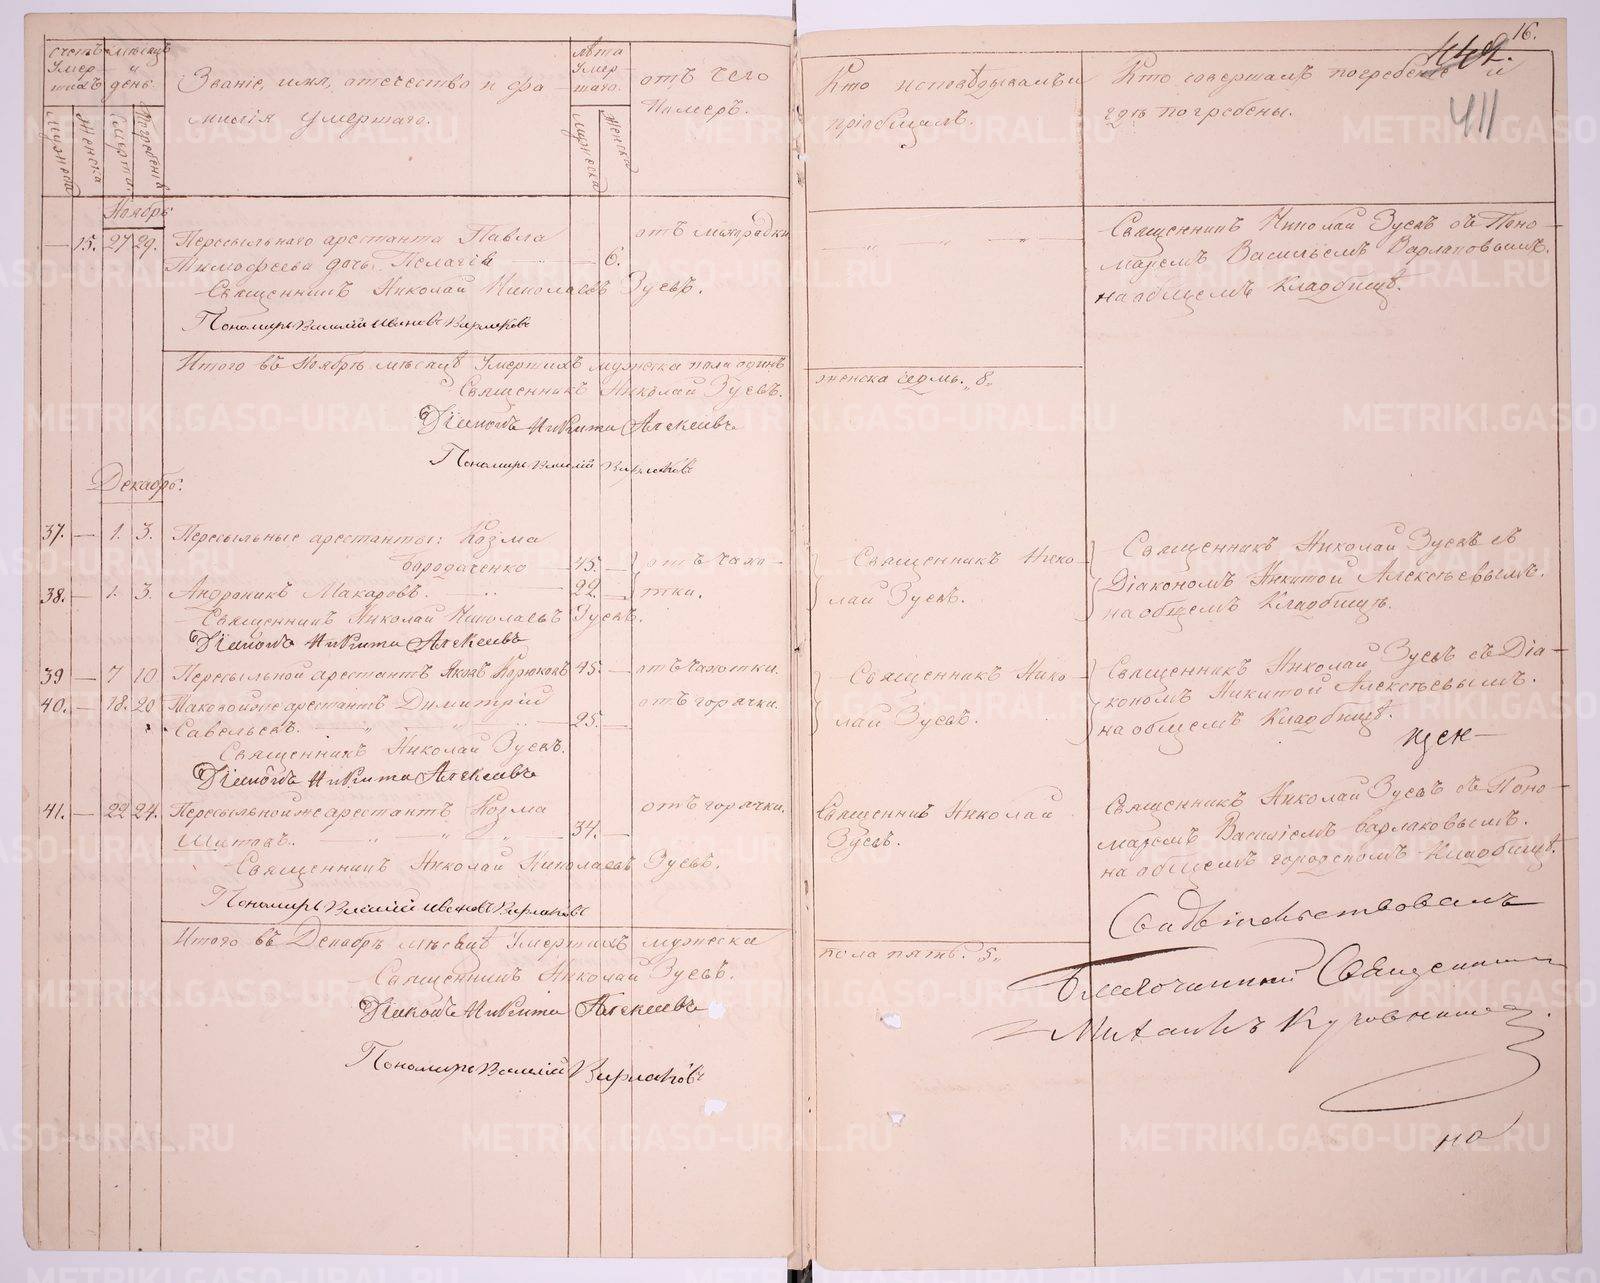 16.
442.
411
Счетъ умер-шихъ
Мѣсяцъ и день.
Званіе, имя, отечество и фа-
милія умершаго.
Лѣта умер-шаго.
отъ чего
Померъ.
Кто исповѣдывалъ и
пріобщалъ.
Кто совершалъ погребеніе и
гдѣ погребены.
Мужеска
Женска
Смерти.
Погребенія
Мужеска
Женска
Ноябрь
— 15. 27 29. Пересыльнаго арестанта Павла
Тимофеева дочь Пелагія — 6.
отъ лихорадки
Священникъ Николай Зуевъ съ Поно-
маремъ Васильемъ Варлаковымъ.
на общемъ Кладбищѣ.
Священникъ Николай Николаевъ Зуевъ.
Пономарь Василій Ивановъ Варлаковъ
Итого въ Ноябрѣ мѣсяцѣ умершихъ мужеска пола одинъ
женска семь. 8.
Священникъ Николай Зуевъ.
Діаконъ Никита Алексѣевъ
Пономарь Василій Варлаковъ
Декабрь.
37. — 1. 3. Пересыльные арестанты: Козма
Бородаченко 45. —
38. — 1. 3. Андроникъ Макаровъ. 22. —
отъ чахо-
тки.
Священникъ Нико-
лай Зуевъ.
Священникъ Николай Зуевъ съ
Діакономъ Никитой Алексѣевымъ.
на общемъ Кладбищѣ.
Священникъ Николай Николаевъ Зуевъ.
Діаконъ Никита Алексѣевъ
39 — 7 10 Пересыльной арестантъ Яковъ Корюковъ 45. — отъ чахотки.
40. — 18. 20 Таковой же арестантъ Димитрій
Савельевъ. 25. —
отъ горячки.
Священникъ Нико-
лай Зуевъ.
Священникъ Николай Зуевъ съ Діа-
кономъ Никитой Алексѣевымъ.
на общемъ Кладбищѣ.
щен-
Священникъ Николай Зуевъ.
Діаконъ Никита Алексѣевъ
41. — 22 24. Пересыльной же арестантъ Козма
Шитовъ. 34. —
отъ горячки.
Священникъ Николай
Зуевъ.
Священникъ Николай Зуевъ съ Поно-
маремъ Василіемъ Варлаковымъ.
на общемъ городскомъ Кладбищѣ.
Священникъ Николай Николаевъ Зуевъ.
Пономарь Василій Ивановъ Варлаковъ
Итого въ Декабрѣ мѣсяцѣ умершихъ мужеска
пола пять. 5.
Священникъ Николай Зуевъ.
Діаконъ Никита Алексѣевъ
Пономарь Василій Варлаковъ
Свидѣтельствовалъ
Благочинный Священникъ
Михаилъ
но
METRIKI.GASO-URAL.RU